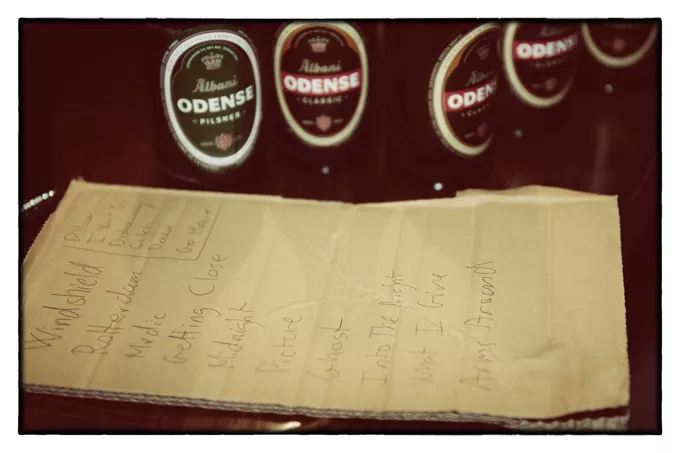 Albani
ODENSE
PILSNER
Albani
ODENSE
CLASSIC
Albani
ODENSE
CLASSIC
ODENSE
Windshield
Rotterdam
Medic
Getting Close
Midnight
Picture
Ghost
Into The Night
What I Give
Arms Around
Pillow
I
Down
Go Home